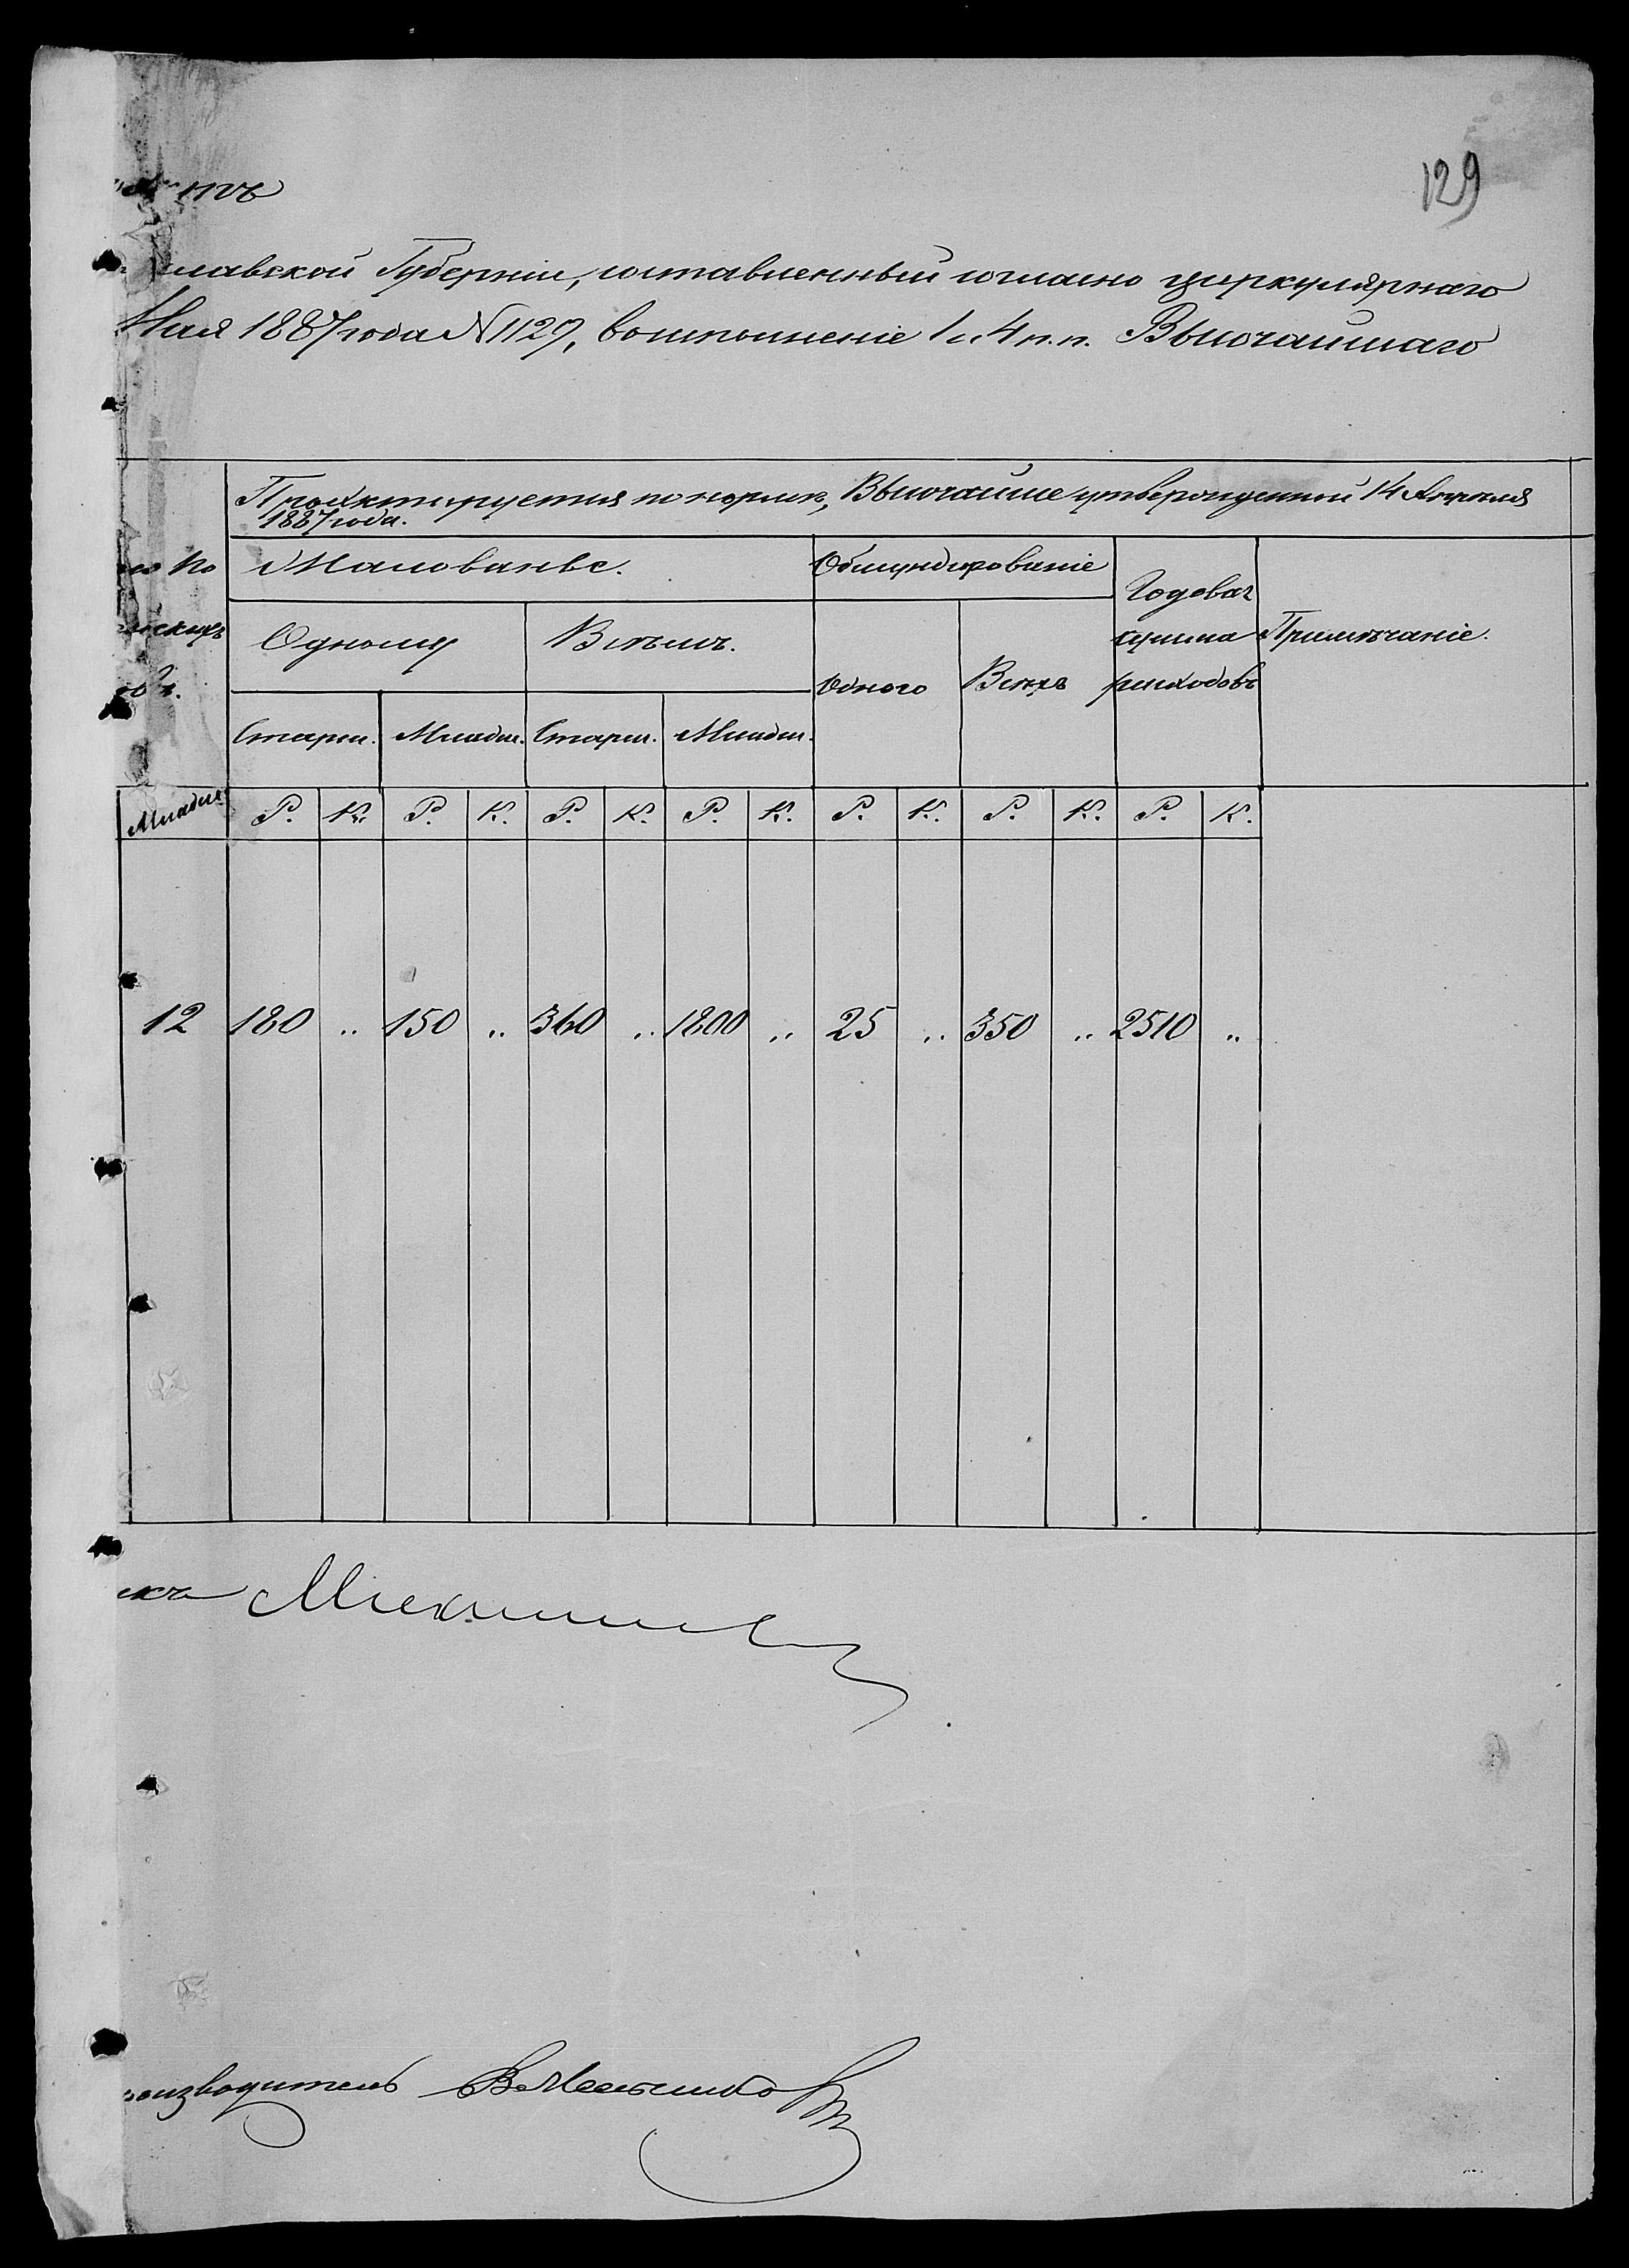 129
славской Губерніи, составленный согласно циркулярнаго
Мая 1887 года № 1129, во исполненіе 1 и 4 п.п. Высочайшаго
Проэктируется по нормѣ, Высочайше утвержденной 14 Апрѣля
1887 года.
по
Жалованье.
Обмундированіе
Годовая
сумма
расходовъ
Примѣчаніе.
Одному
Всѣмъ.
Одного
Всѣхъ
Старш. Младш. Старш. Младш.
Младш. Р. К. Р. К. Р. К. Р. К. Р. К. Р. К. Р. К.
12 180 „ 150 „ 360 „ 1800 „ 25 „ 350 „ 2510 „
оизводитель